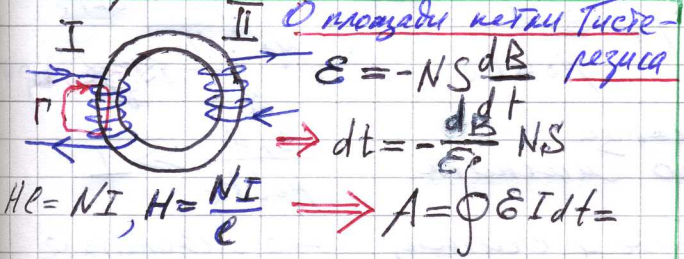 О площади петли Гисте-
резиса
I II
Г
ℰ = -NS dB/dt
⇒ dt = - dB/ℰ NS
Hl = NI, H = NI/l ⇒ A = ∮ ℰIdt =